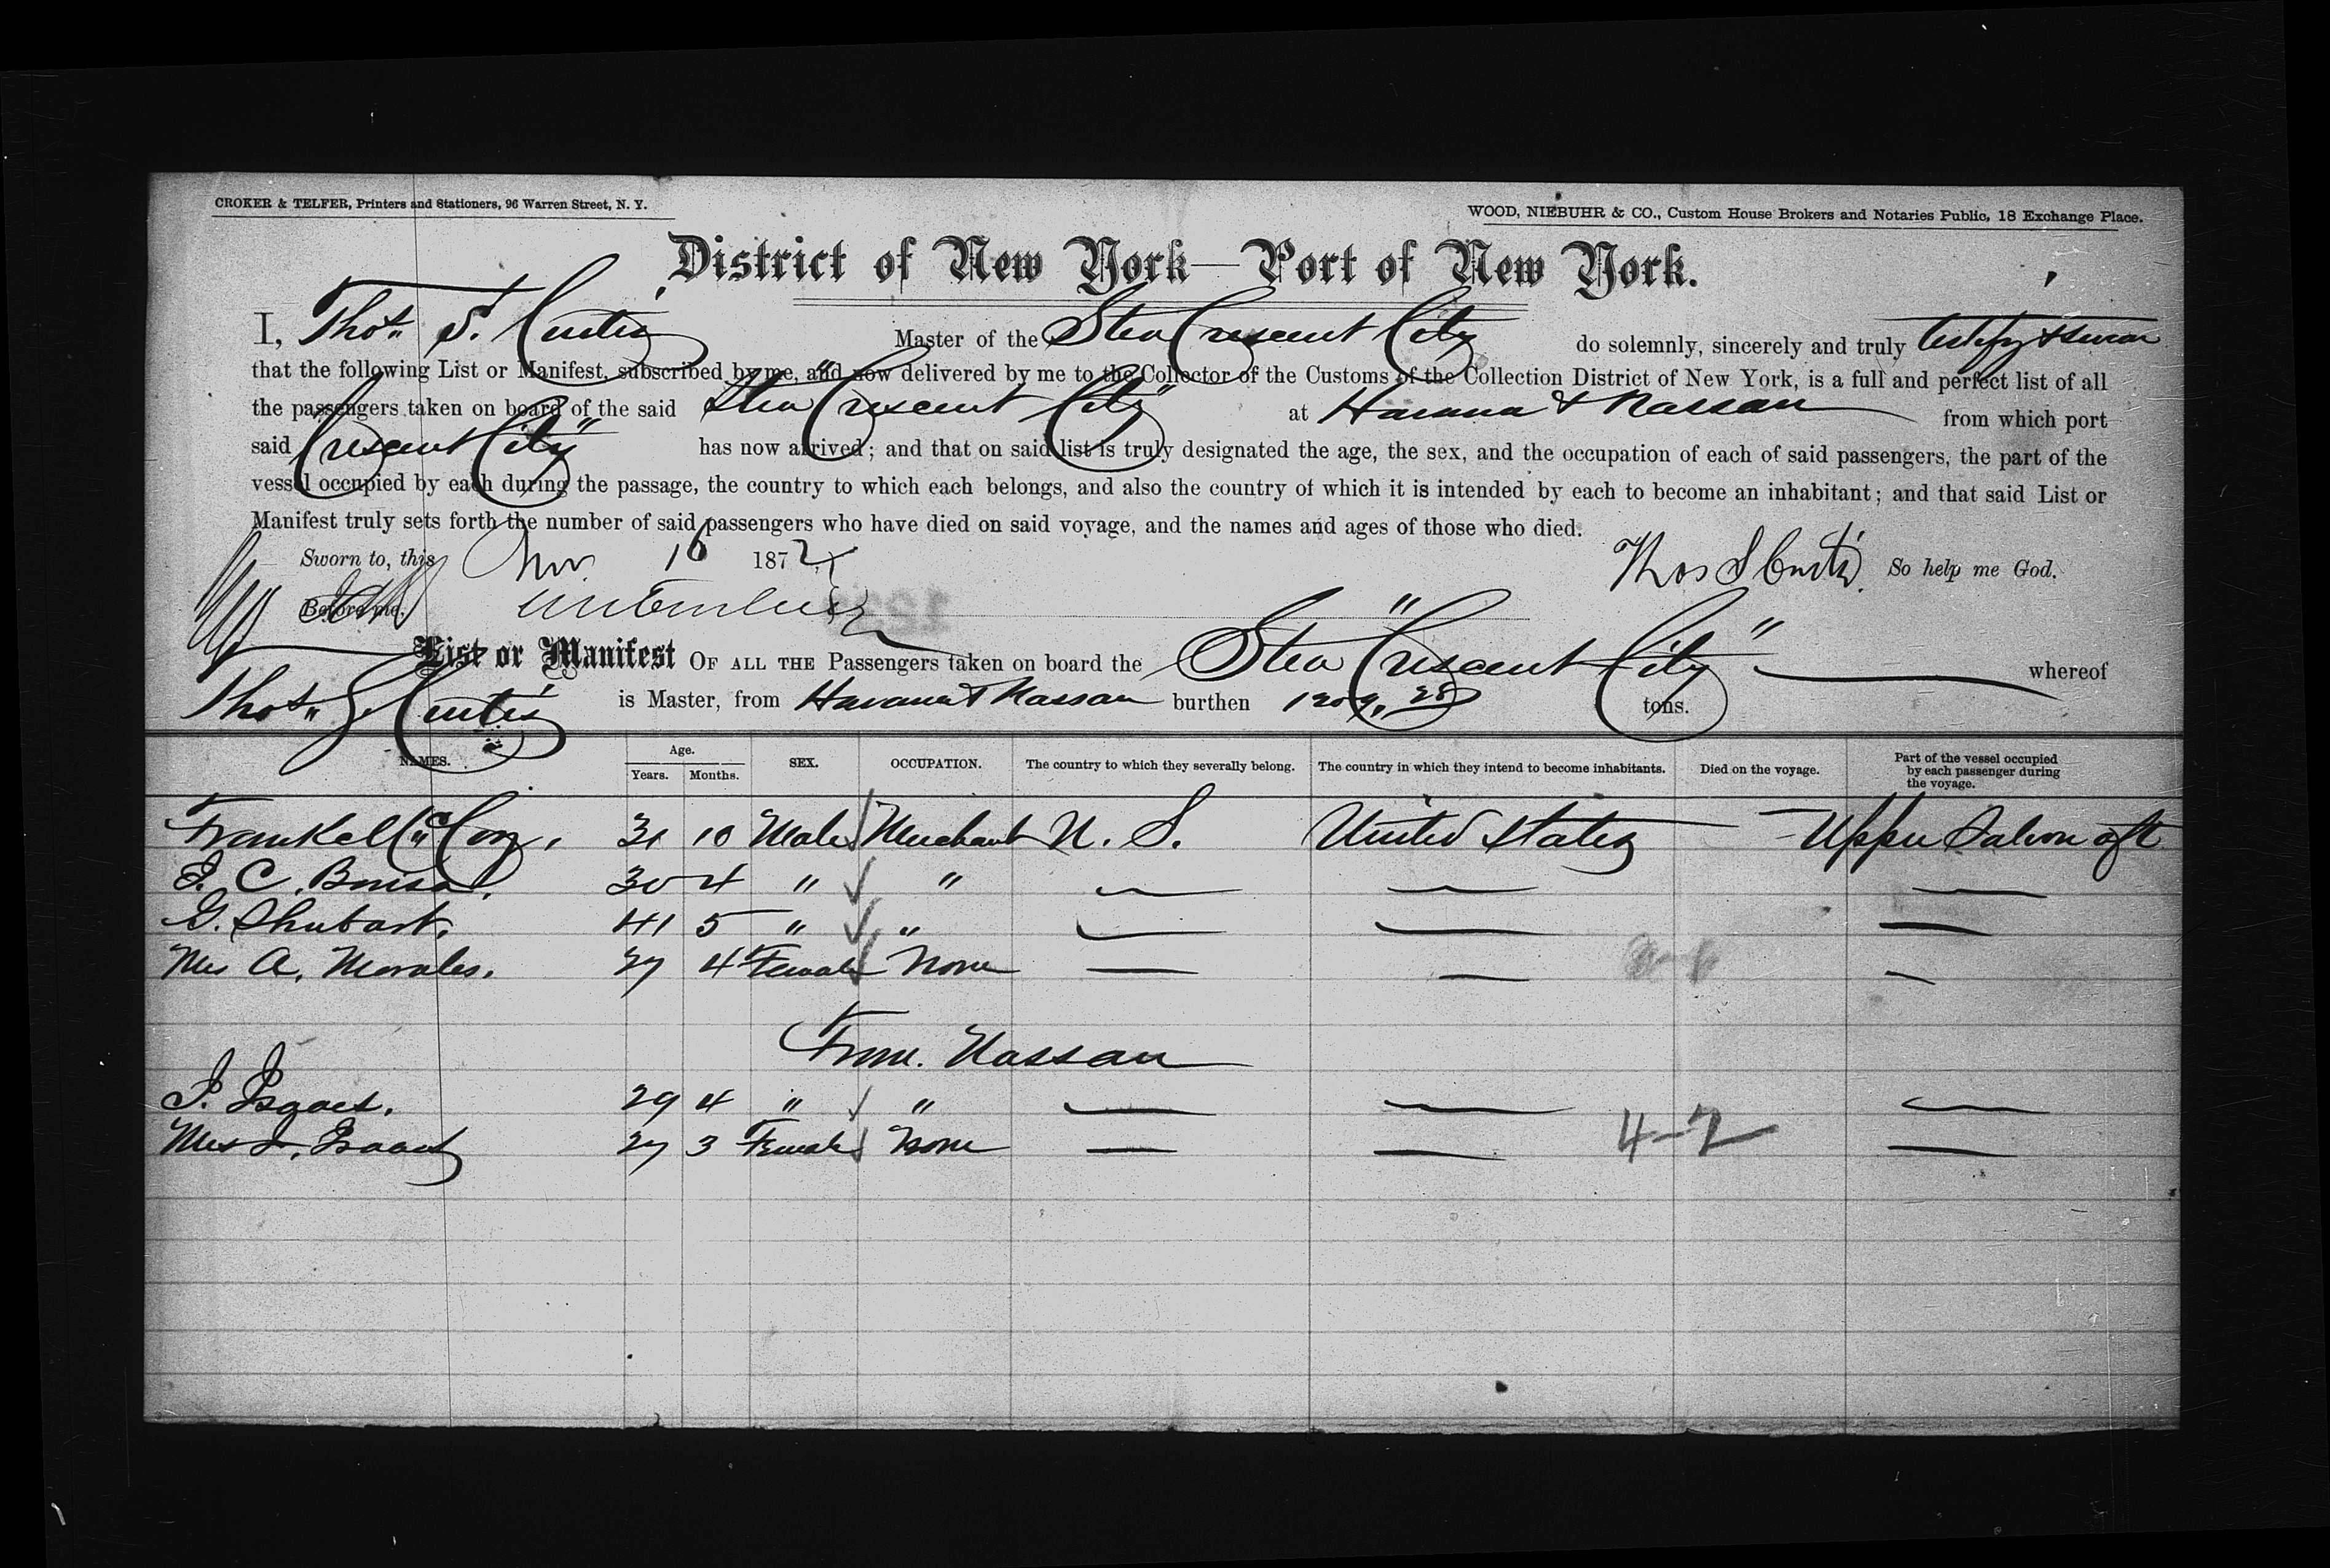 CROKER & TELFER, Printers and Stationers, 96 Warren Street, N. Y.
WOOD, NIEBUHR & CO., Custom House Brokers and Notaries Public, 18 Exchange Place.
District of New York—Port of New York.
I, Thos. S. Curtis Master of the Stea "Crescent City" do solemnly, sincerely and truly testify & swear
that the following List or Manifest, subscribed by me, and now delivered by me to the Collector of the Customs of the Collection District of New York, is a full and perfect list of all
the passengers taken on board of the said Stea Crescent City" at Havana & Nassau from which port
said Crescent City" has now arrived; and that on said list is truly designated the age, the sex, and the occupation of each of said passengers, the part of the
vessel occupied by each during the passage, the country to which each belongs, and also the country of which it is intended by each to become an inhabitant; and that said List or
Manifest truly sets forth the number of said passengers who have died on said voyage, and the names and ages of those who died.
Sworn to, this Nov. 16 1872 Thos S Curtis. So help me God.
Before me,
List or Manifest OF ALL THE Passengers taken on board the Stea "Crescent City" whereof
Thos. S. Curtis is Master, from Havana & Nassau burthen tons.
NAMES. Age. Years. Months. SEX. OCCUPATION. The country to which they severally belong. The country in which they intend to become inhabitants. Died on the voyage. Part of the vessel occupied by each passenger during the voyage.
31 10 Male Merchant U. S. United States — Upper Saloon aft
30 4 " " — — —
G. Shubart. 41 5 " " — — —
Mrs A. Morales. 27 4 Female None — — —
From. Nassau
29 4 " " — — —
Mrs I. Isaacs 27 3 Female None — — —
4-2